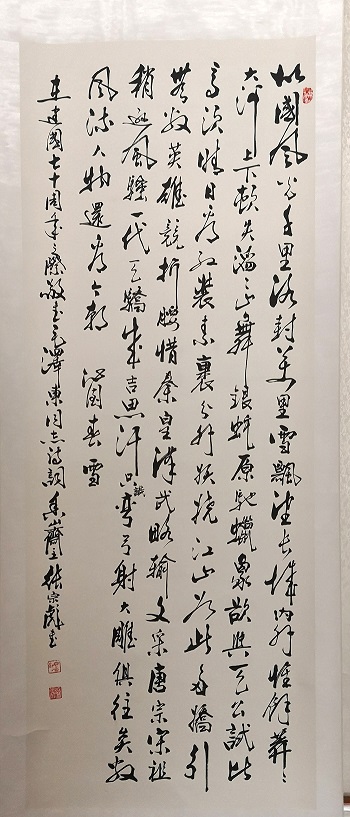 北國風光千里冰封萬里雪飄望長城內外惟餘莽〻
大河上下頓失滔〻山舞銀蛇原馳蠟象欲與天公試比
高須晴日看紅裝素裹分外妖嬈江山如此多嬌引
無數英雄競折腰惜秦皇漢武略輸文采唐宗宋祖
稍遜風騷一代天驕成吉思汗只識彎弓射大雕俱往矣數
風流人物還看今朝 沁園春雪
在建國七十周年之際敬書毛澤東同志詩詞 張宗彪書